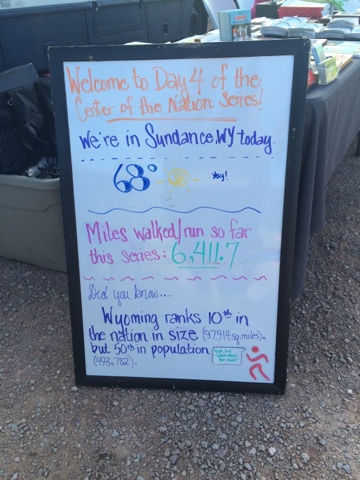 Welcome to Day 4 of the
Center of the Nation Series!
We're in Sundance, WY today.
68° yay!
Miles walked/run so far
this series: 6,411.7
Did you know...
Wyoming ranks 10th in
the nation in size (97,914 sq. miles),
but 50th in population
(493,782).